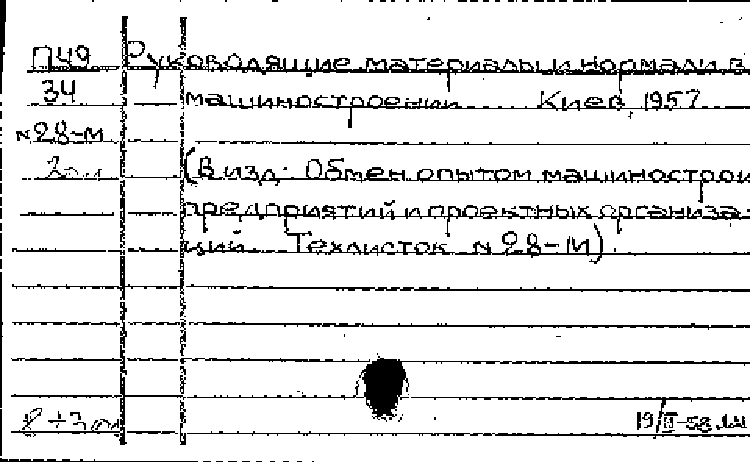 П49 Руководящие материалы и нормали в
34 машиностроении Киев, 1957
№28-М
(В изд: Обмен опытом машинострои
предприятий и проектных организа-
ций. Техлисток №28-М)
19/III-58